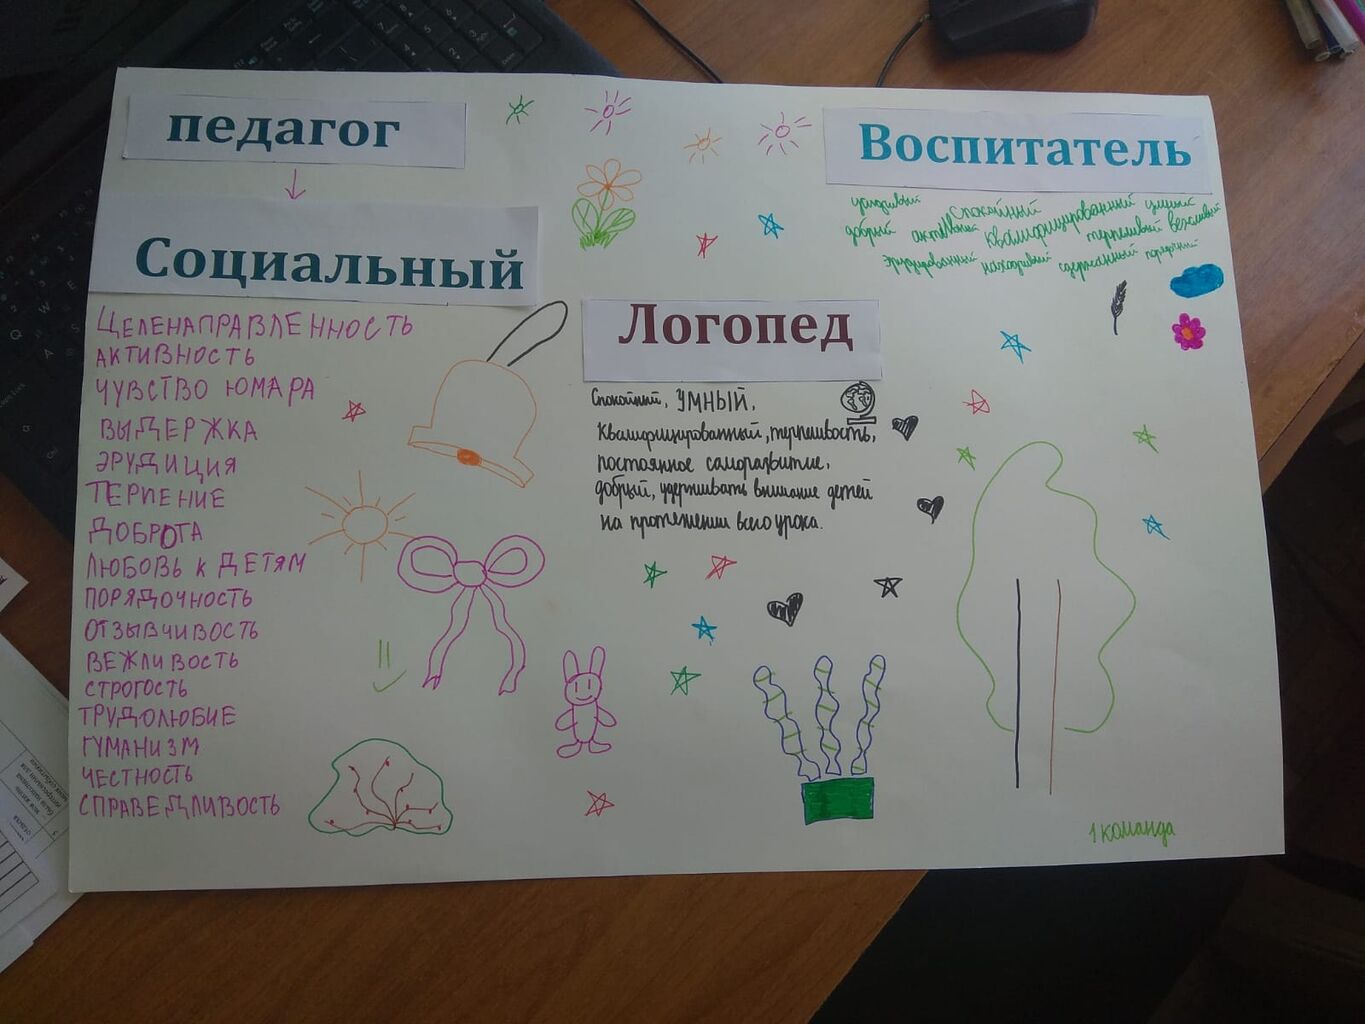 педагог
Социальный
ЦЕЛЕНАПРАВЛЕННОСТЬ
АКТИВНОСТЬ
ЧУВСТВО ЮМАРА
ВЫДЕРЖКА
ЭРУДИЦИЯ
ТЕРПЕНИЕ
ДОБРОТА
ЛЮБОВЬ К ДЕТЯМ
ПОРЯДОЧНОСТЬ
ОТЗЫВЧИВОСТЬ
ВЕЖЛИВОСТЬ
СТРОГОСТЬ
ТРУДОЛЮБИЕ
ГУМАНИЗМ
ЧЕСТНОСТЬ
СПРАВЕДЛИВОСТЬ
Логопед
Спокойный, УМНЫЙ,
Квалифицированный, терпеливость,
постоянное саморазвитие,
добрый, удерживать внимание детей
на протяжении всего урока.
Воспитатель
спокойный квалифицированный умный
добрый активный терпеливый вежливый
эрудированный находчивый сдержанный порядочный
1 команда